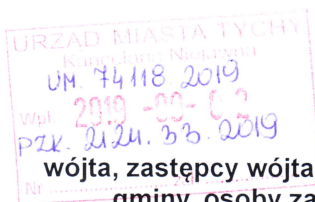 URZĄD MIASTA TYCHY
Kancelaria
UM. 74118.2019
Wpł. 2019 -09- 03
PZK. 2124.33.2019
wójta, zastępcy wójta
Nr
gminy, osoby za